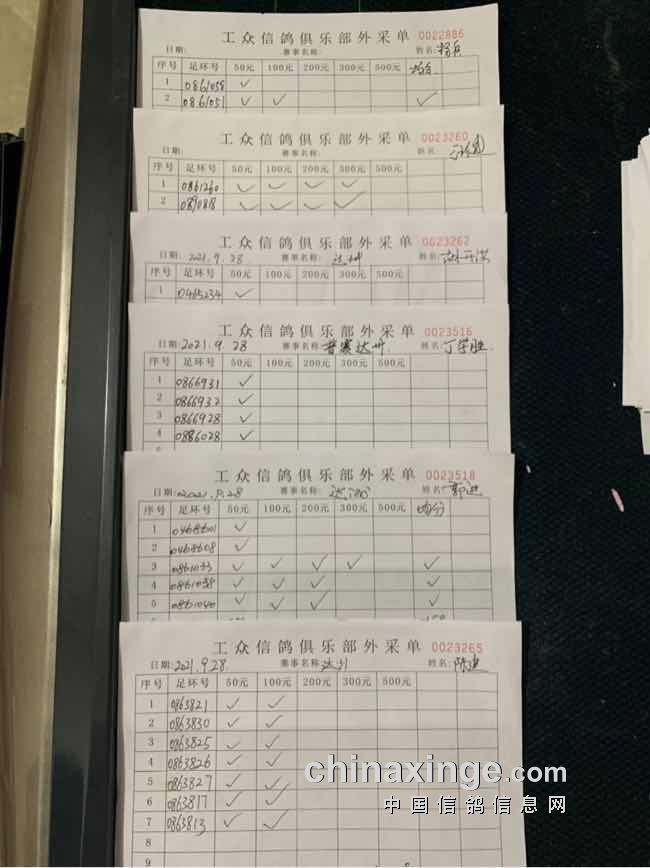 工众信鸽俱乐部外采单 0022886
日期: 赛事名称: 姓名:
序号 足环号 50元 100元 200元 300元 500元
1 0861058 ✓
2 0861051 ✓ ✓ ✓
工众信鸽俱乐部外采单 0023260
日期: 赛事名称: 姓名:
序号 足环号 50元 100元 200元 300元 500元
1 0861260 ✓ ✓ ✓ ✓
2 ✓ ✓ ✓ ✓
工众信鸽俱乐部外采单 0023262
日期: 2021.9.28 赛事名称: 达州 姓名:
序号 足环号 50元 100元 200元 300元 500元
1 0465234 ✓
工众信鸽俱乐部外采单 0023516
日期: 2021.9.28 赛事名称: 普赛达州 姓名: 丁学胜
序号 足环号 50元 100元 200元 300元 500元
1 0866931 ✓
2 0866932 ✓
3 0866928 ✓
4 0886028 ✓
工众信鸽俱乐部外采单 0023518
日期: 2021.9.28 赛事名称: 姓名: 郭进
序号 足环号 50元 100元 200元 300元 500元 均分
1 0468601 ✓
2 0468608 ✓
3 0861033 ✓ ✓ ✓ ✓ ✓
4 0861038 ✓ ✓ ✓ ✓
5 0861040 ✓ ✓ ✓ ✓
工众信鸽俱乐部外采单 0023265
日期: 2021.9.28 赛事名称: 达州 姓名: 陈建
序号 足环号 50元 100元 200元 300元 500元
1 0863821 ✓ ✓
2 0863830 ✓ ✓
3 0863825 ✓ ✓
4 0863826 ✓ ✓
5 0863827 ✓ ✓
6 0863817 ✓ ✓
7 0863813 ✓ ✓
8
9
chinaxinge.com
中国信鸽信息网